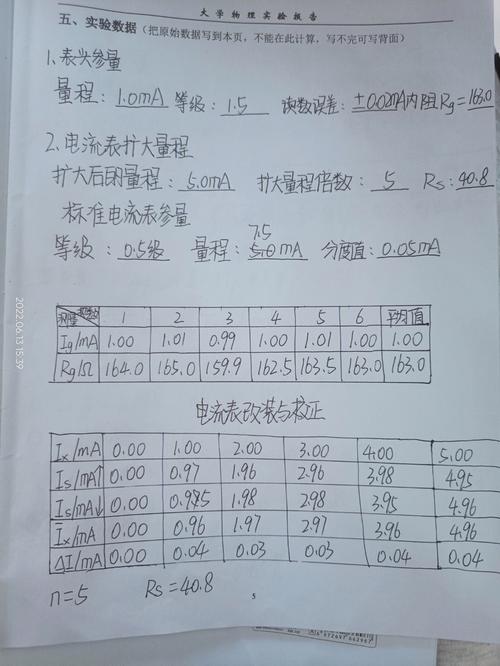 大学物理实验报告
五、实验数据(把原始数据写到本页,不能在此计算,写不完可写背面)
1、表头参量
量程:1.0mA 等级:1.5 读数误差:±0.02mA 内阻Rg=163.0
2、电流表扩大量程
扩大后的量程:5.0mA 扩大量程倍数:5 Rs:40.8
标准电流表参量
7.5
等级:0.5级 量程:5.0mA 分度值:0.05mA
测量 次数 1 2 3 4 5 6 平均值
Ig/mA 1.00 1.01 0.99 1.00 1.01 1.00 1.00
Rg/Ω 164.0 165.0 159.9 162.5 163.5 163.0 163.0
电流表改装与校正
Ix/mA 0.00 1.00 2.00 3.00 4.00 5.00
Is/mA↑ 0.00 0.97 1.96 2.96 3.98 4.95
Is/mA↓ 0.00 0.95 1.98 2.98 3.95 4.96
Īx/mA 0.00 0.96 1.97 2.97 3.96 4.96
ΔI/mA 0.00 0.04 0.03 0.03 0.04 0.04
n=5 Rs=40.8
5
2022.06.13 15:39